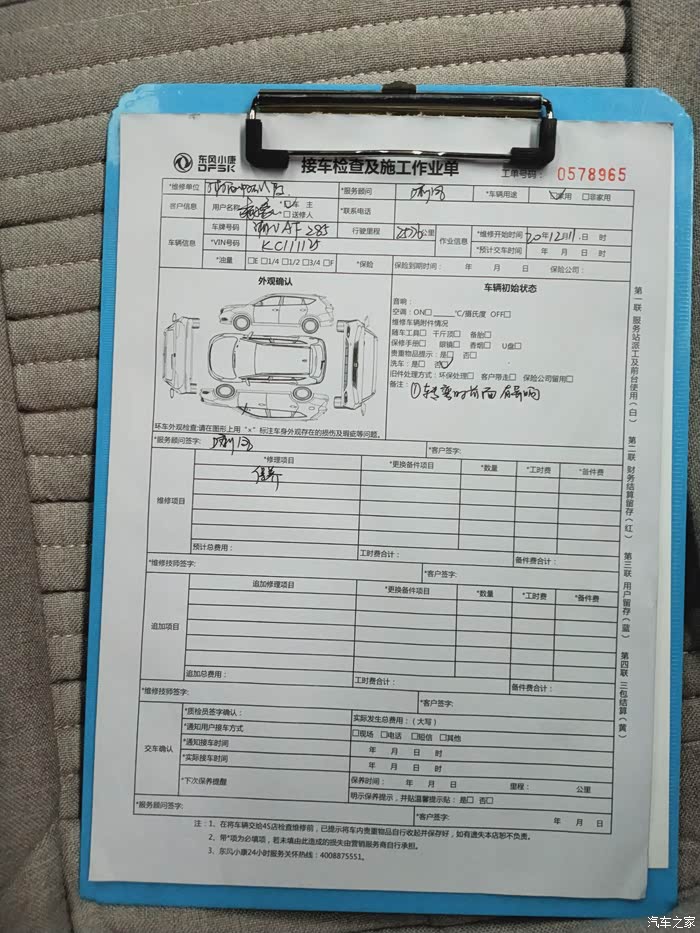 东风小康
DFSK
接车检查及施工作业单
工单号码： 0578965
*维修单位 *服务顾问 *车辆用途 家用 □非家用
客户信息 用户名称 车 主 □送修人 *联系电话
车辆信息 车牌号码 行驶里程 公里 作业信息 *维修开始时间 20年12月11日 时
*VIN号码 KC111125 *预计交车时间 年 月 日 时
*油量 □E □1/4 □1/2 □3/4 □F *保险 保险到期时间： 年 月 日 保险公司：
外观确认
环车外观检查:请在图形上用“×”标注车身外观存在的损伤及瑕疵等问题。
车辆初始状态
音响：
空调：ON□ ______℃/摄氏度 OFF□
维修车辆附件情况
随车工具□ 千斤顶□ 备胎□
保修手册□ 眼镜□ 香烟□ U盘□
贵重物品提示：是□ 否□
洗车：是□ 否□
旧件处理方式：环保处理□ 客户带走□ 保险公司留用□
备注：①转弯时前面有异响
*服务顾问签字: *客户签字:
维修项目 *修理项目 *更换备件项目 *数量 *工时费 *备件费
保养
预计总费用： 工时费合计： 备件费合计：
*维修技师签字: *客户签字:
追加项目 追加修理项目 *更换备件项目 *数量 *工时费 *备件费
追加总费用： 工时费合计： 备件费合计：
*维修技师签字: *客户签字:
交车确认 *质检员签字确认： 实际发生总费用：（大写）
*通知用户接车方式 □现场 □电话 □短信 □其他
*通知接车时间 年 月 日 时
*实际接车时间 年 月 日 时
*下次保养提醒 保养时间： 年 月 日 里程： 公里
明示保养提示，并贴温馨提示贴：是□ 否□
*服务顾问签字: *客户签字: 年 月 日
注：1、在将车辆交给4S店检查维修前，已提示将车内贵重物品自行收起并保存好，如有遗失本店恕不负责。
2、带*项为必填项，若未填由此造成的损失由营销服务商自行承担。
3、东风小康24小时服务关怀热线：4008875551。
第一联 服务站派工及前台使用（白）
第二联 财务结算留存（红）
第三联 用户留存（蓝）
第四联 三包结算（黄）
汽车之家